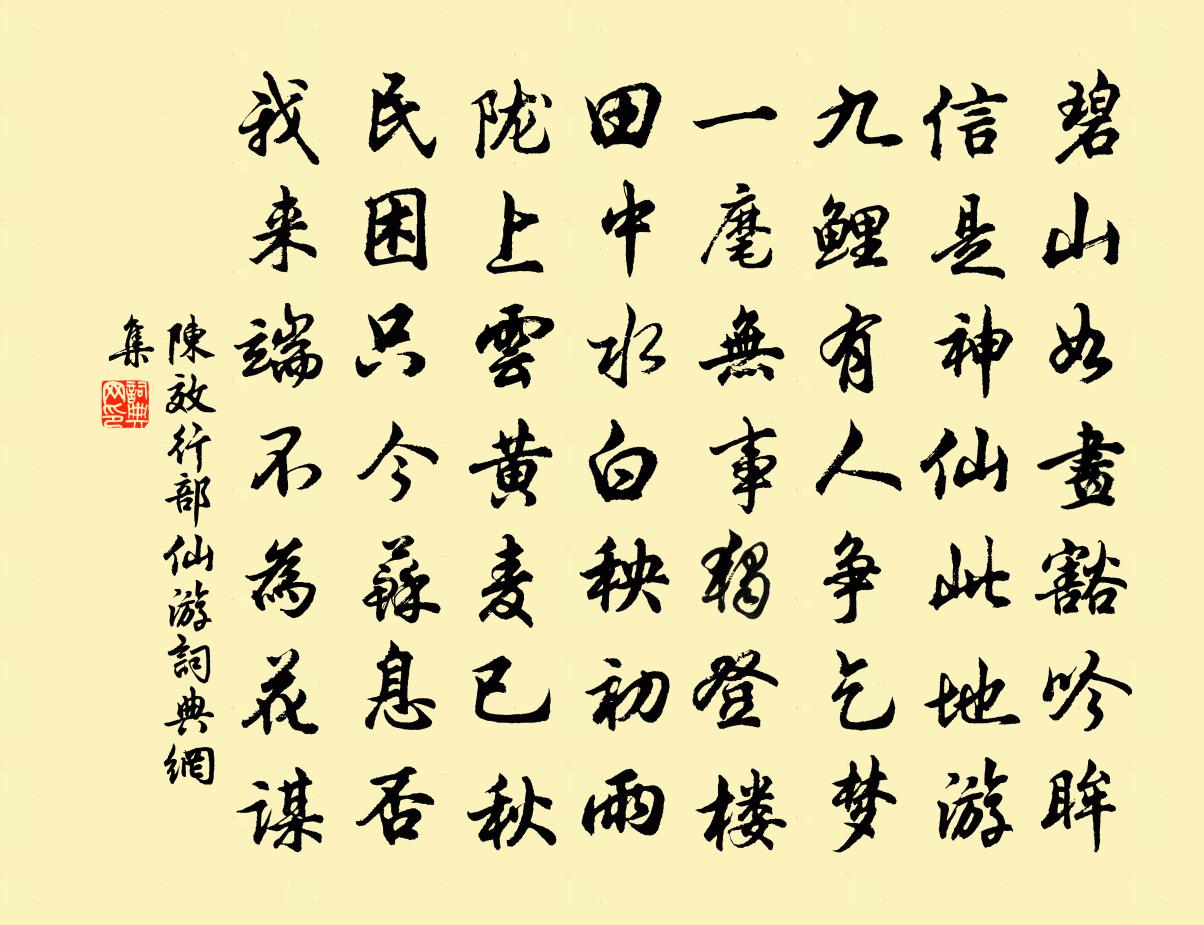 碧山如畫豁吟眸
信是神仙此地游
九鲤有人争乞梦
一麾無事獨登楼
田中水白秧初雨
陇上雲黄麦已秋
民困只今蘇息否
我来端不為花謀
陳效行部仙游詞典網
集
詞典
网印